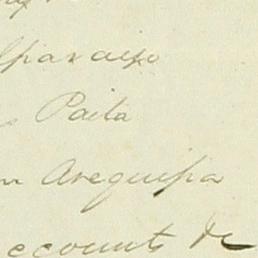 lparaiso
Paita
Arequipa
ccounts de